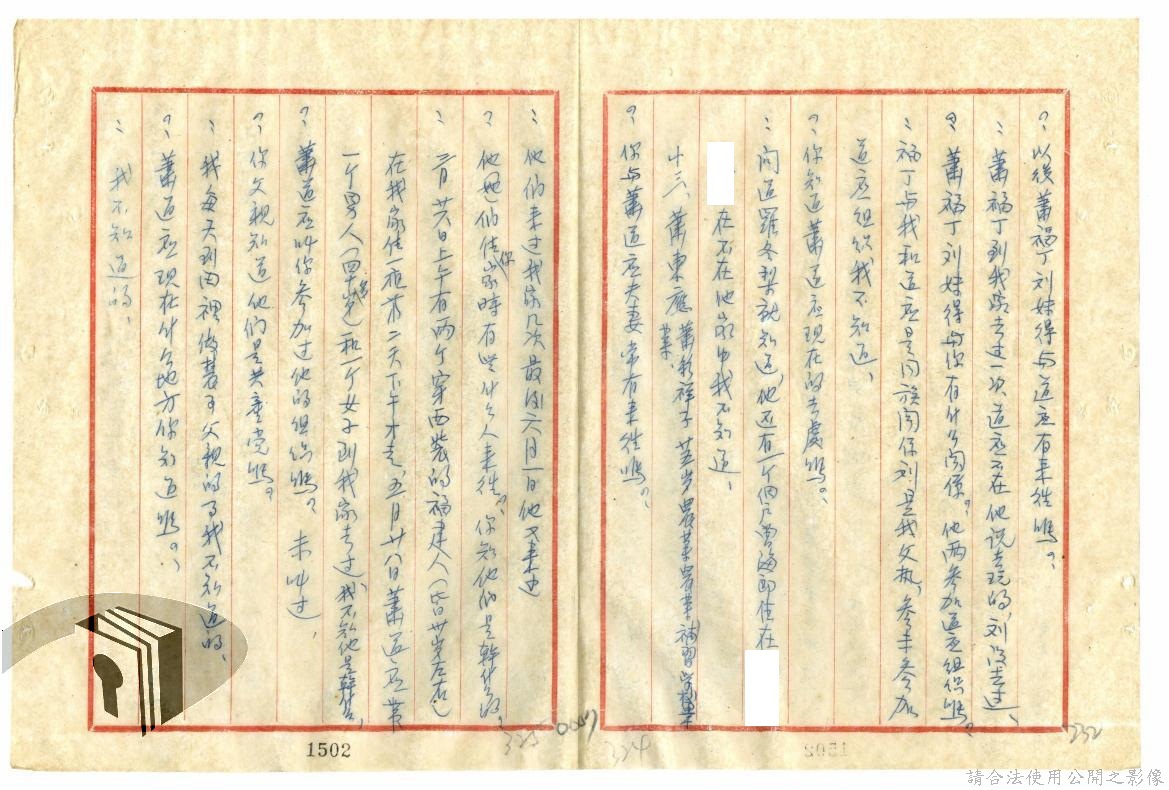 ？以後蕭福丁刘妹得与道应有来往嗎？
：蕭福丁到我家去过一次道应在他说去玩的，刘没去过、
？蕭福丁刘妹得与你有什么関係？他两参加道应组织嗎？
：福丁与我和道应是同族関係刘是我父执，参未参加
道应组织我不知道、
？你知道蕭道应现在的去處嗎？
：问道羅冬梨就知道，他还有一个佃户曾海郎住在
在不在他家中我不知道、
十三、蕭東應 蕭彩祥子 廿五岁農業農業補習学校畢
業
？你与蕭道应夫妻常有来往嗎？
：他们来过我家几次最後六月一日他又来过
？他她们住你家時有些什么人来往？你知他们是幹什么的？
：二月廿六日上午有两个穿西裝的福建人（皆卅岁左右）
在我家住一夜第二天下午才走、五月廿八日蕭道应帶
一个男人（四十多歲）和一个女子到我家去过，我不知他是幹什么，
？蕭道应叫你参加过他的组织嗎？ 未叫过，
？你父親知道他们是共產党嗎？
：我每天到田裡做農事父親的事我不知道的、
？蕭道应现在什么地方你知道嗎？
：我不知道的、
1502
1502
332
334
335
請合法使用公開之影像